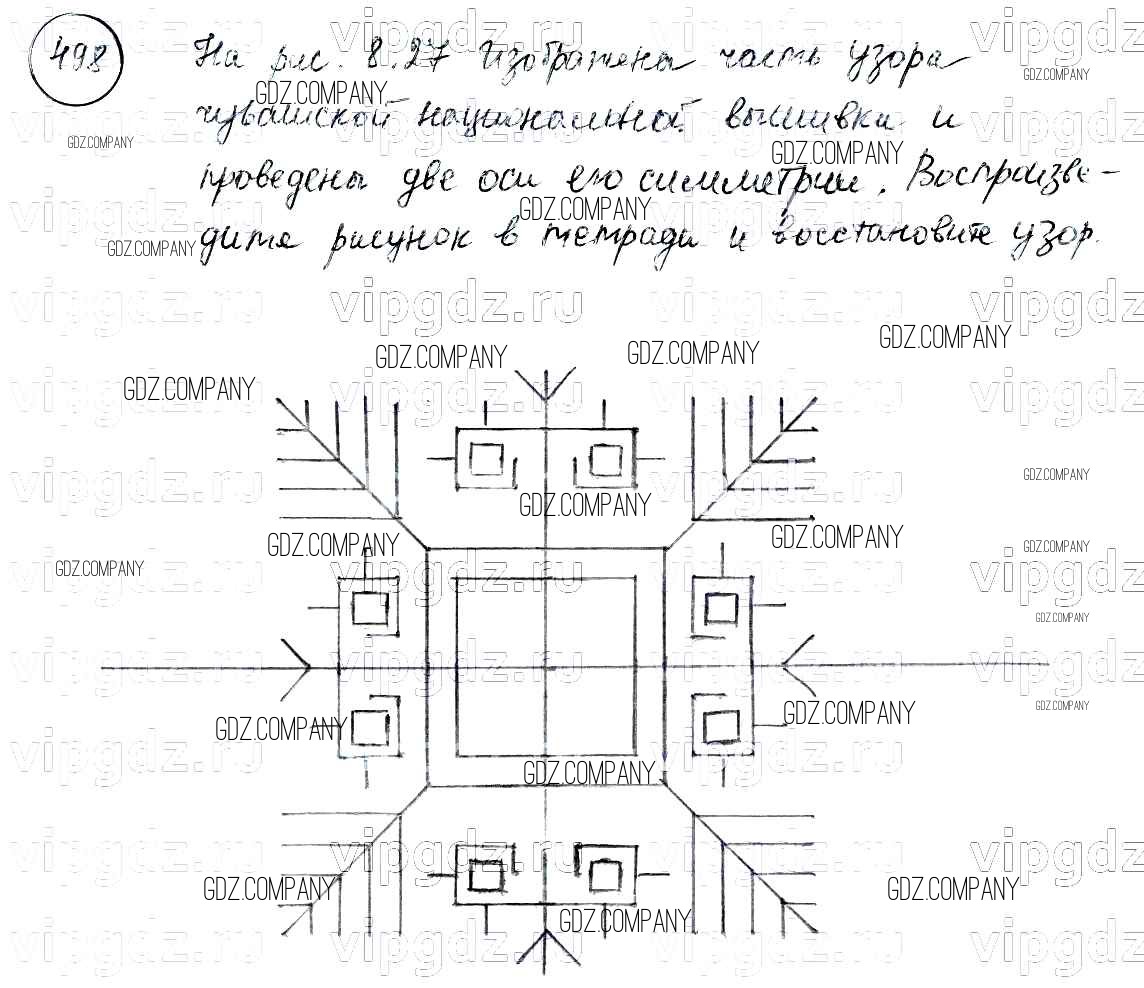 498 На рис. 8.27 изображена часть узора
чувашской национальной вышивки и
проведены две оси его симметрии. Воспроизве-
дите рисунок в тетради и восстановите узор.
vipgdz.ru
GDZ.COMPANY